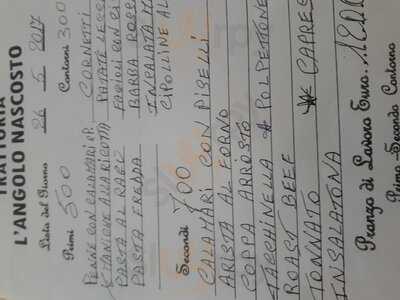 TRATTORIA
L'ANGOLO NASCOSTO
Lista del Giorno 26 5 2017
Primi 500
PENNE CON CALAMARI
PASTA AL RAGU
PASTA FREDDA
Contorni 300
CORNETTI
PATATE
FAGIOLI CON
BARBA
INSALATA
CIPOLLINE AL
Secondi 700
CALAMARI CON PISELLI
ARISTA AL FORNO
COPPA ARROSTO
TACCHINELLA * POLPETTONE
ROAST BEEF
TONNATO * CAPRES
INSALATONA
Pranzo di Lavoro Euro. 12,00
Primo-Secondo Contorno